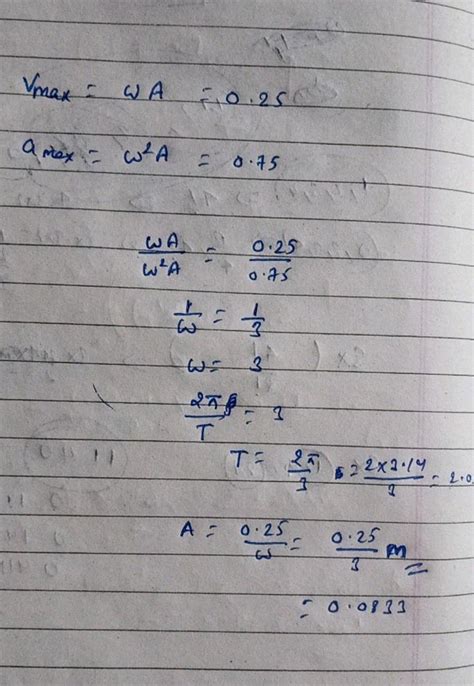 Vmax = ωA = 0.25
amax = ω²A = 0.75
ωA/ω²A = 0.25/0.75
1/ω = 1/3
ω = 3
2π/T = 3
T = 2π/3 = 2×3.14/3 = 2.0
A = 0.25/ω = 0.25/3 m
= 0.0833